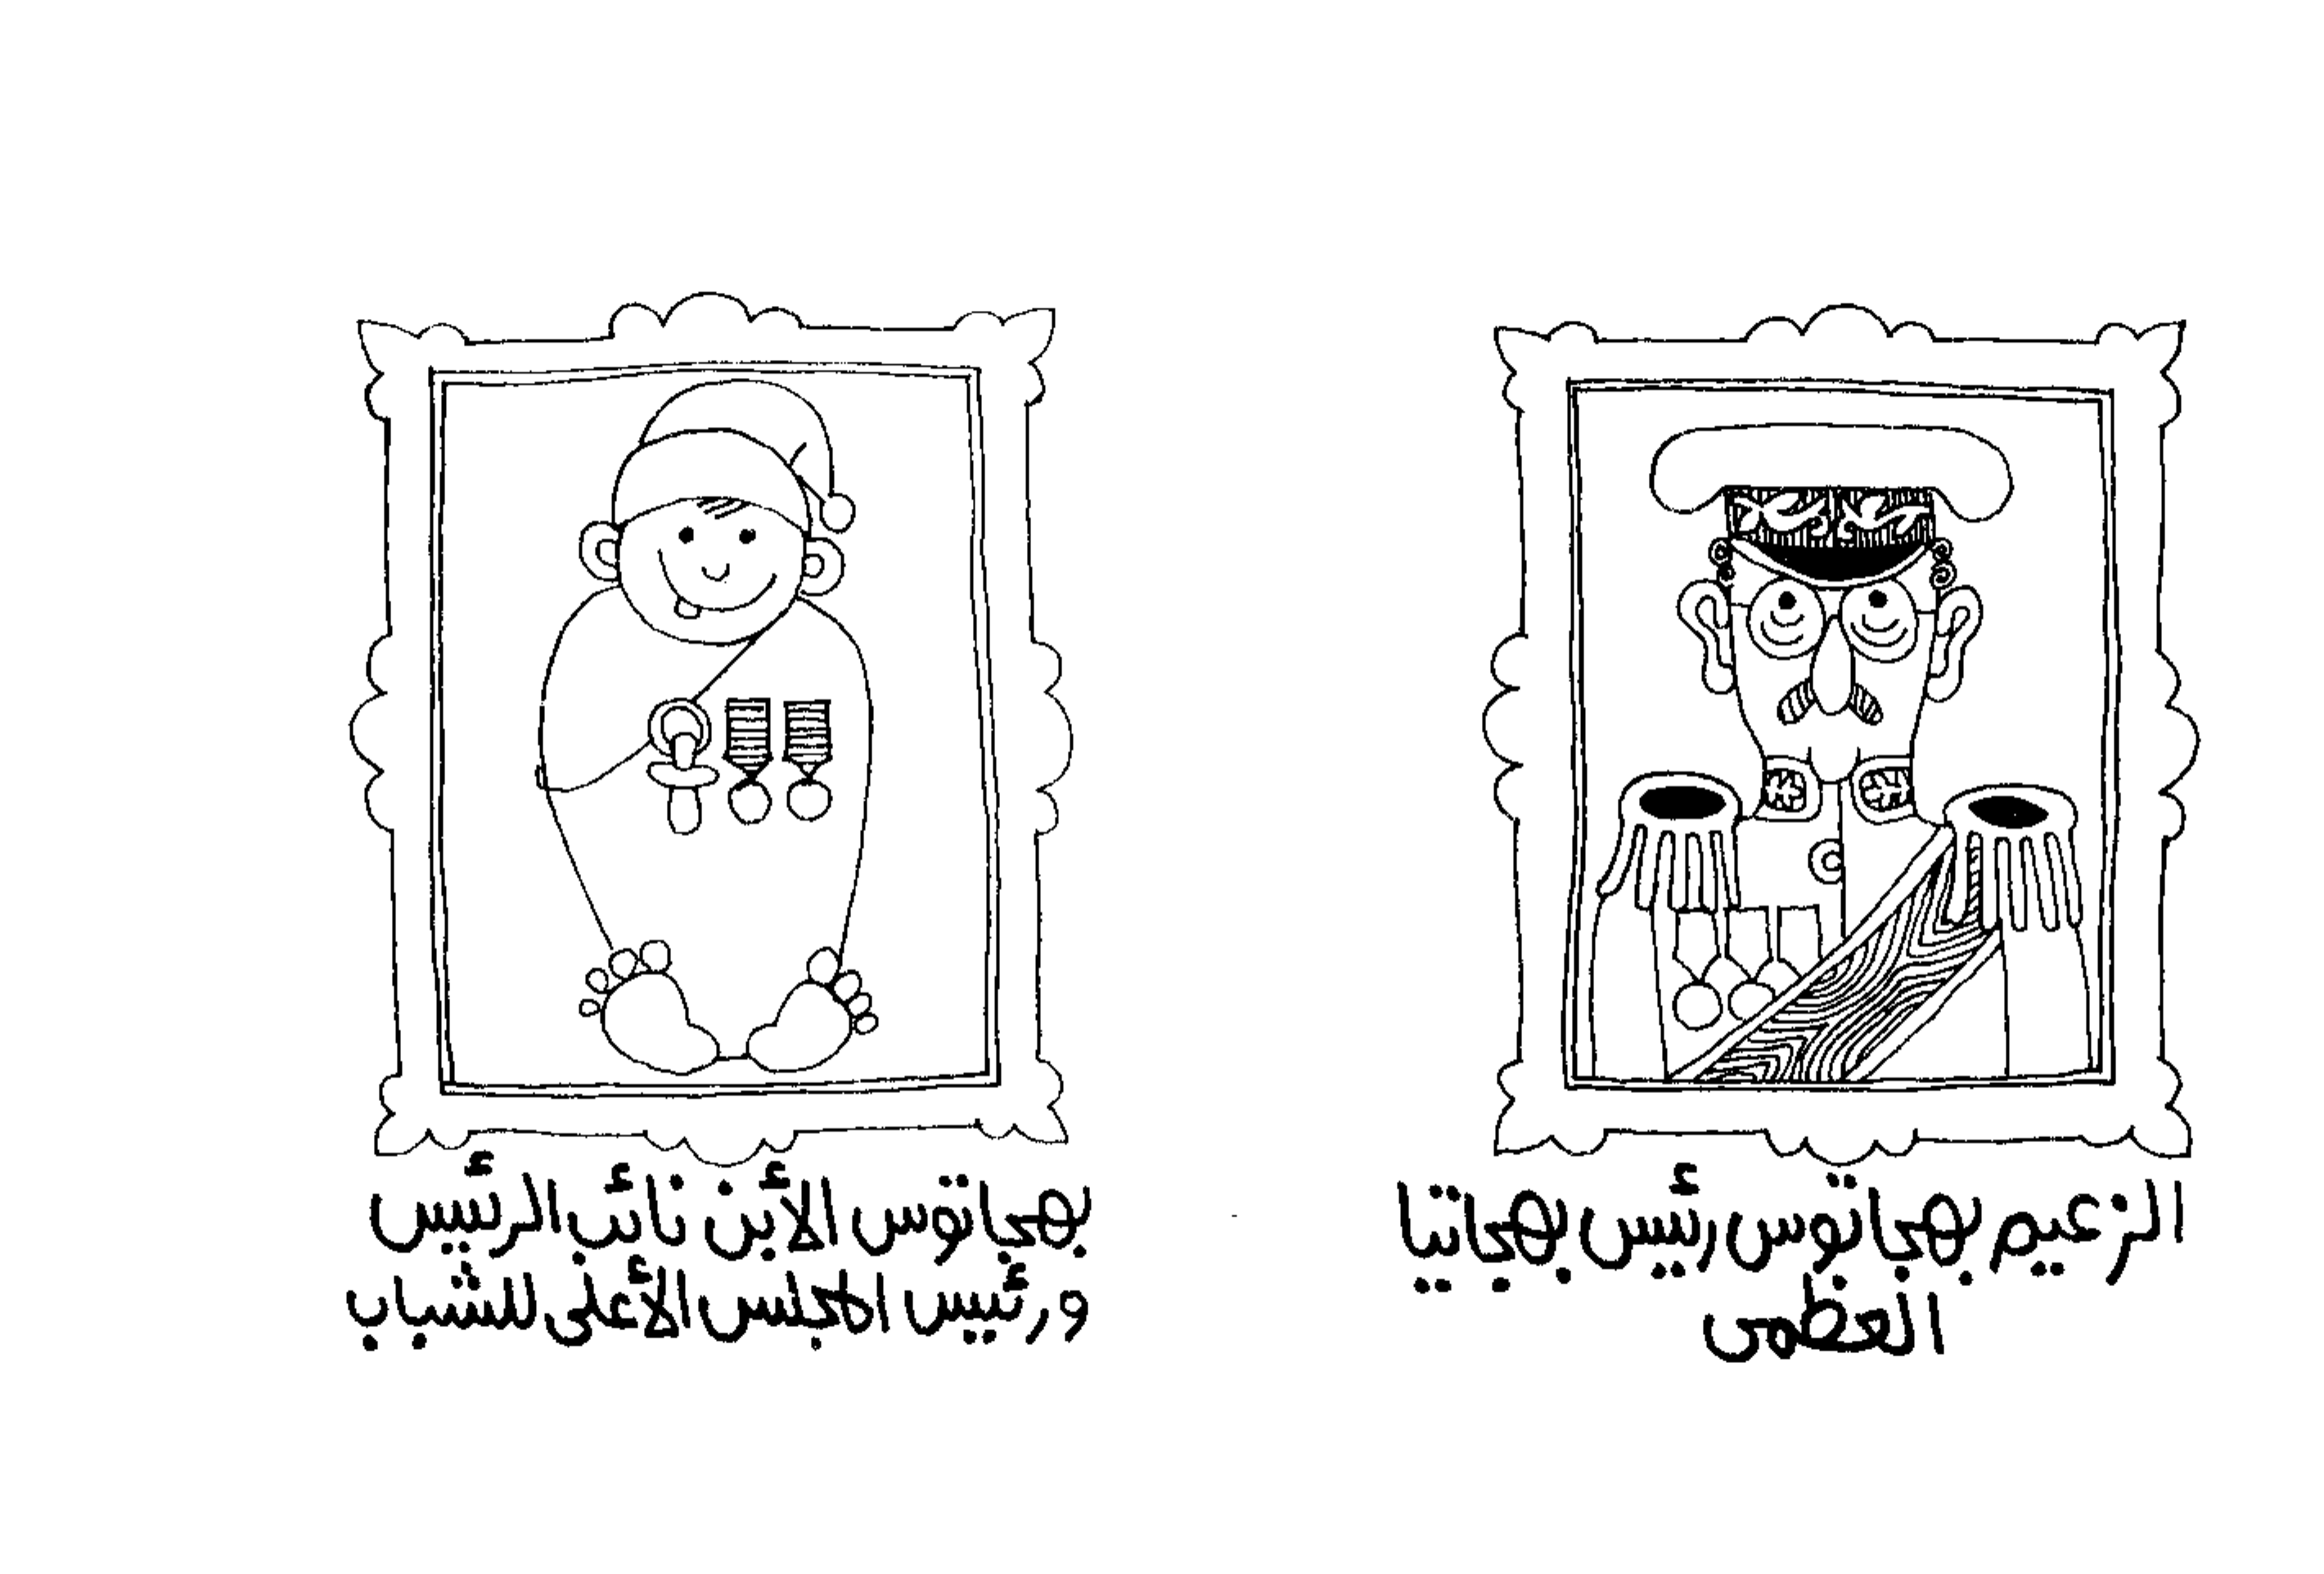 الزعيم بهجاتوس رئيس بهجاتيا
العظمى
بهجاتوس الأبن نائب الرئيس
ورئيس المجلس الأعلى للشباب